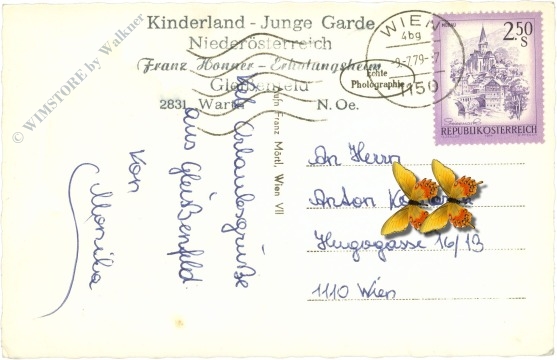 Kinderland - Junge Garde
Niederösterreich
Franz Honner - Erholungsheim
Gleißenfeld
2831 Warth N. Oe.
Echte
Photographie
WIEN
4bg
-9-7.79-7
1150
2.50
S
REPUBLIK ÖSTERREICH
© WIMSTORE by Walkner
Franz Mörtl, Wien VII
Viel Urlaubsgrüße
aus Gleißenfeld
von
Monika
An Herrn
Anton
Hugogasse 16/13
1110 Wien